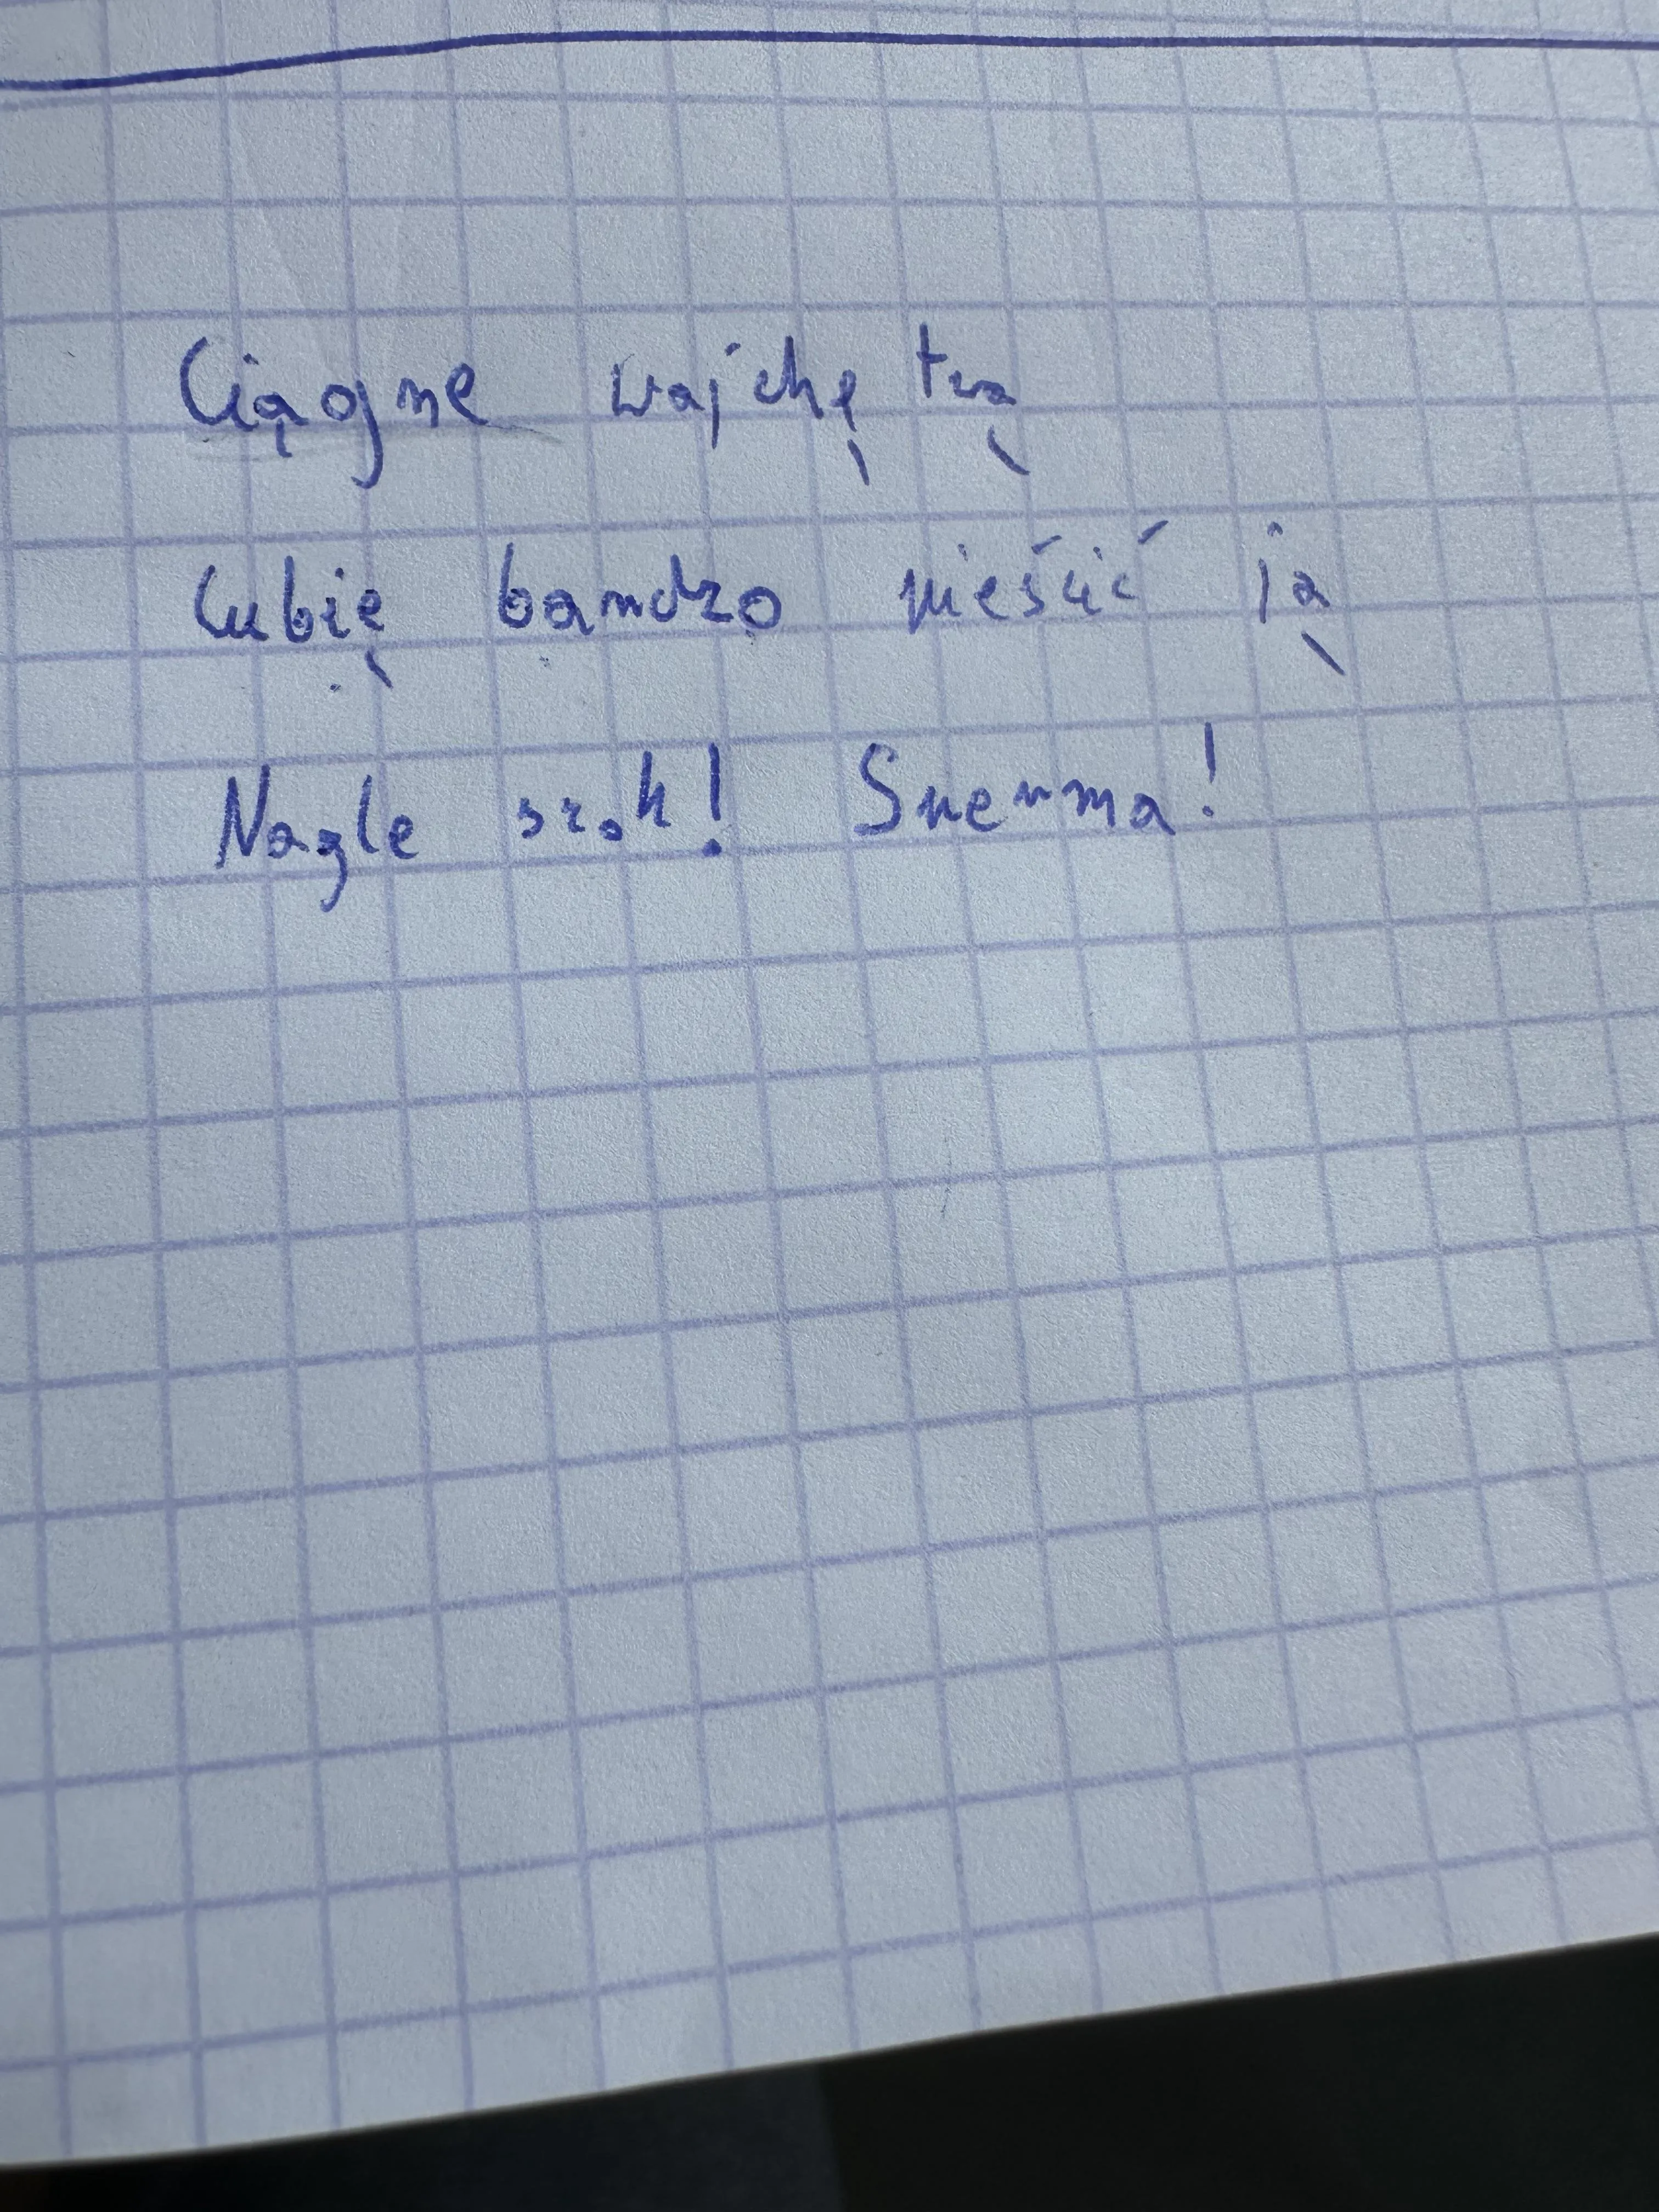 Ciągne wajchę twą
Lubię bardzo pieścić ją
Nagle szok! Sperma!